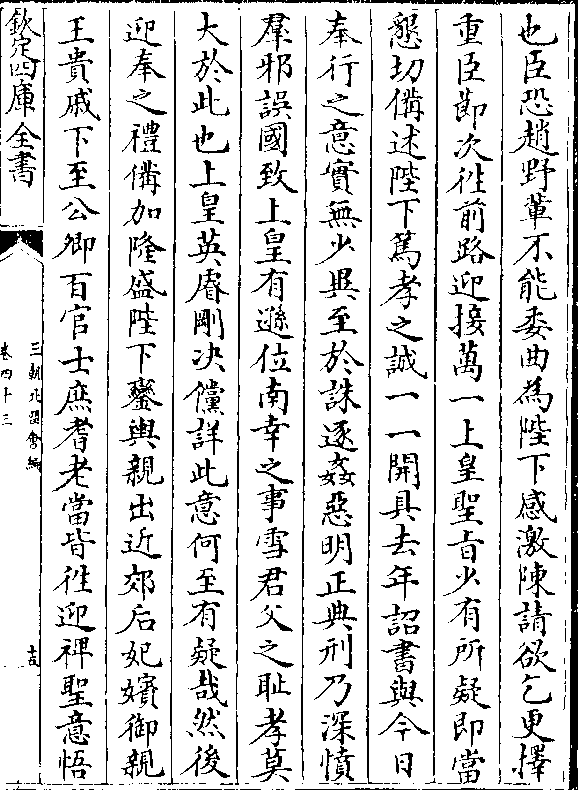 也臣恐趙野輩不能委曲為陛下感激陳請欲乞更擇
重臣節次徃前路迎接萬一上皇聖旨少有所疑即當
懇切備述陛下篤孝之誠一一開具去年詔書與今日
奉行之意實無少異至於誅逐姦惡明正典刑乃深憤
羣邪誤國致上皇有遜位南幸之事雪君父之恥孝莫
大於此也上皇英睿剛决儻詳此意何至有疑哉然後
迎奉之禮備加隆盛陛下鑾輿親出近郊后妃嬪御親
王貴戚下至公卿百官士庶耆老當皆徃迎裨聖意悟
欽定四庫全書
三朝北盟會編
卷四十三